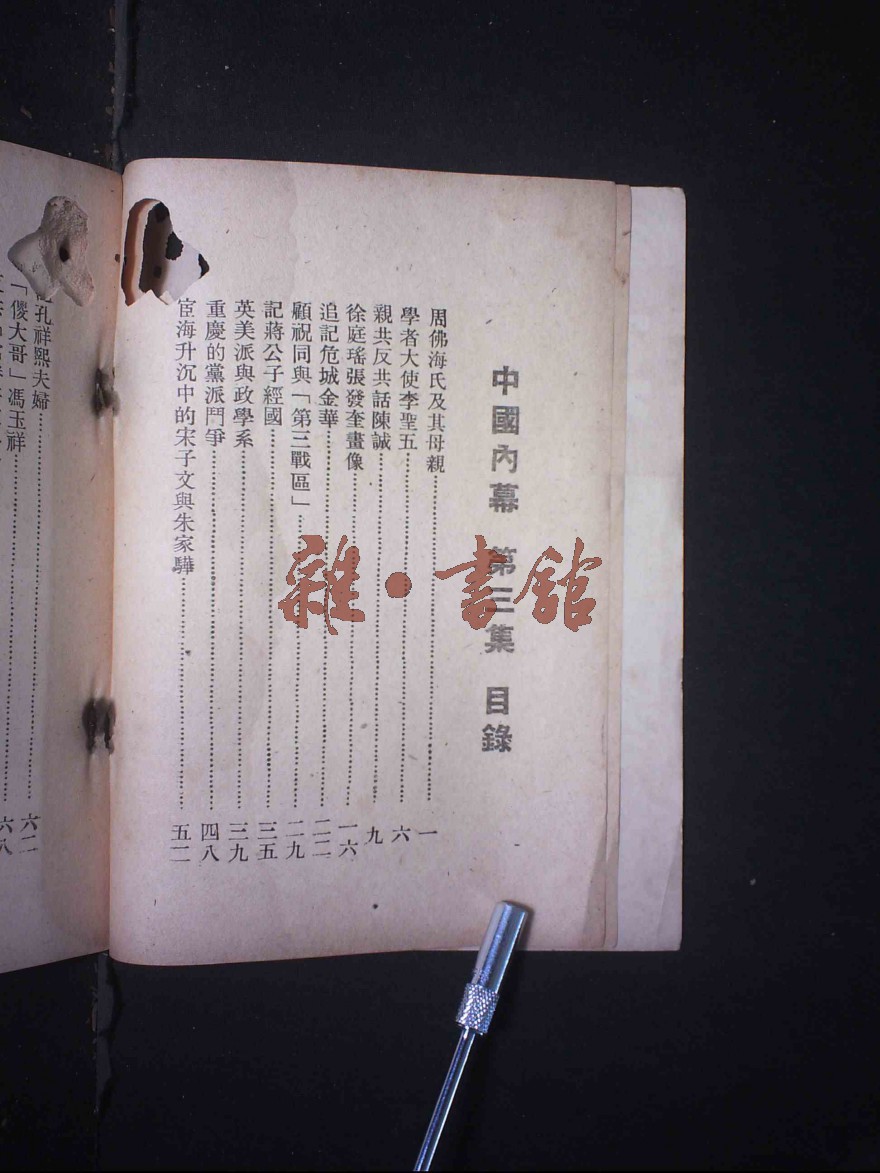 中國內幕 第三集 目錄
周佛海氏及其母親⋯⋯一
學者大使李聖五⋯⋯六
親共反共話陳誠⋯⋯九
徐庭瑤張發奎畫像⋯⋯一六
追記危城金華⋯⋯二二
顧祝同與「第三戰區」⋯⋯二九
記蔣公子經國⋯⋯三五
英美派與政學系⋯⋯三九
重慶的黨派鬥爭⋯⋯四八
宦海升沉中的宋子文與朱家驊⋯⋯五二
孔祥熙夫婦⋯⋯六二
「傻大哥」馮玉祥⋯⋯六八
雜·書館